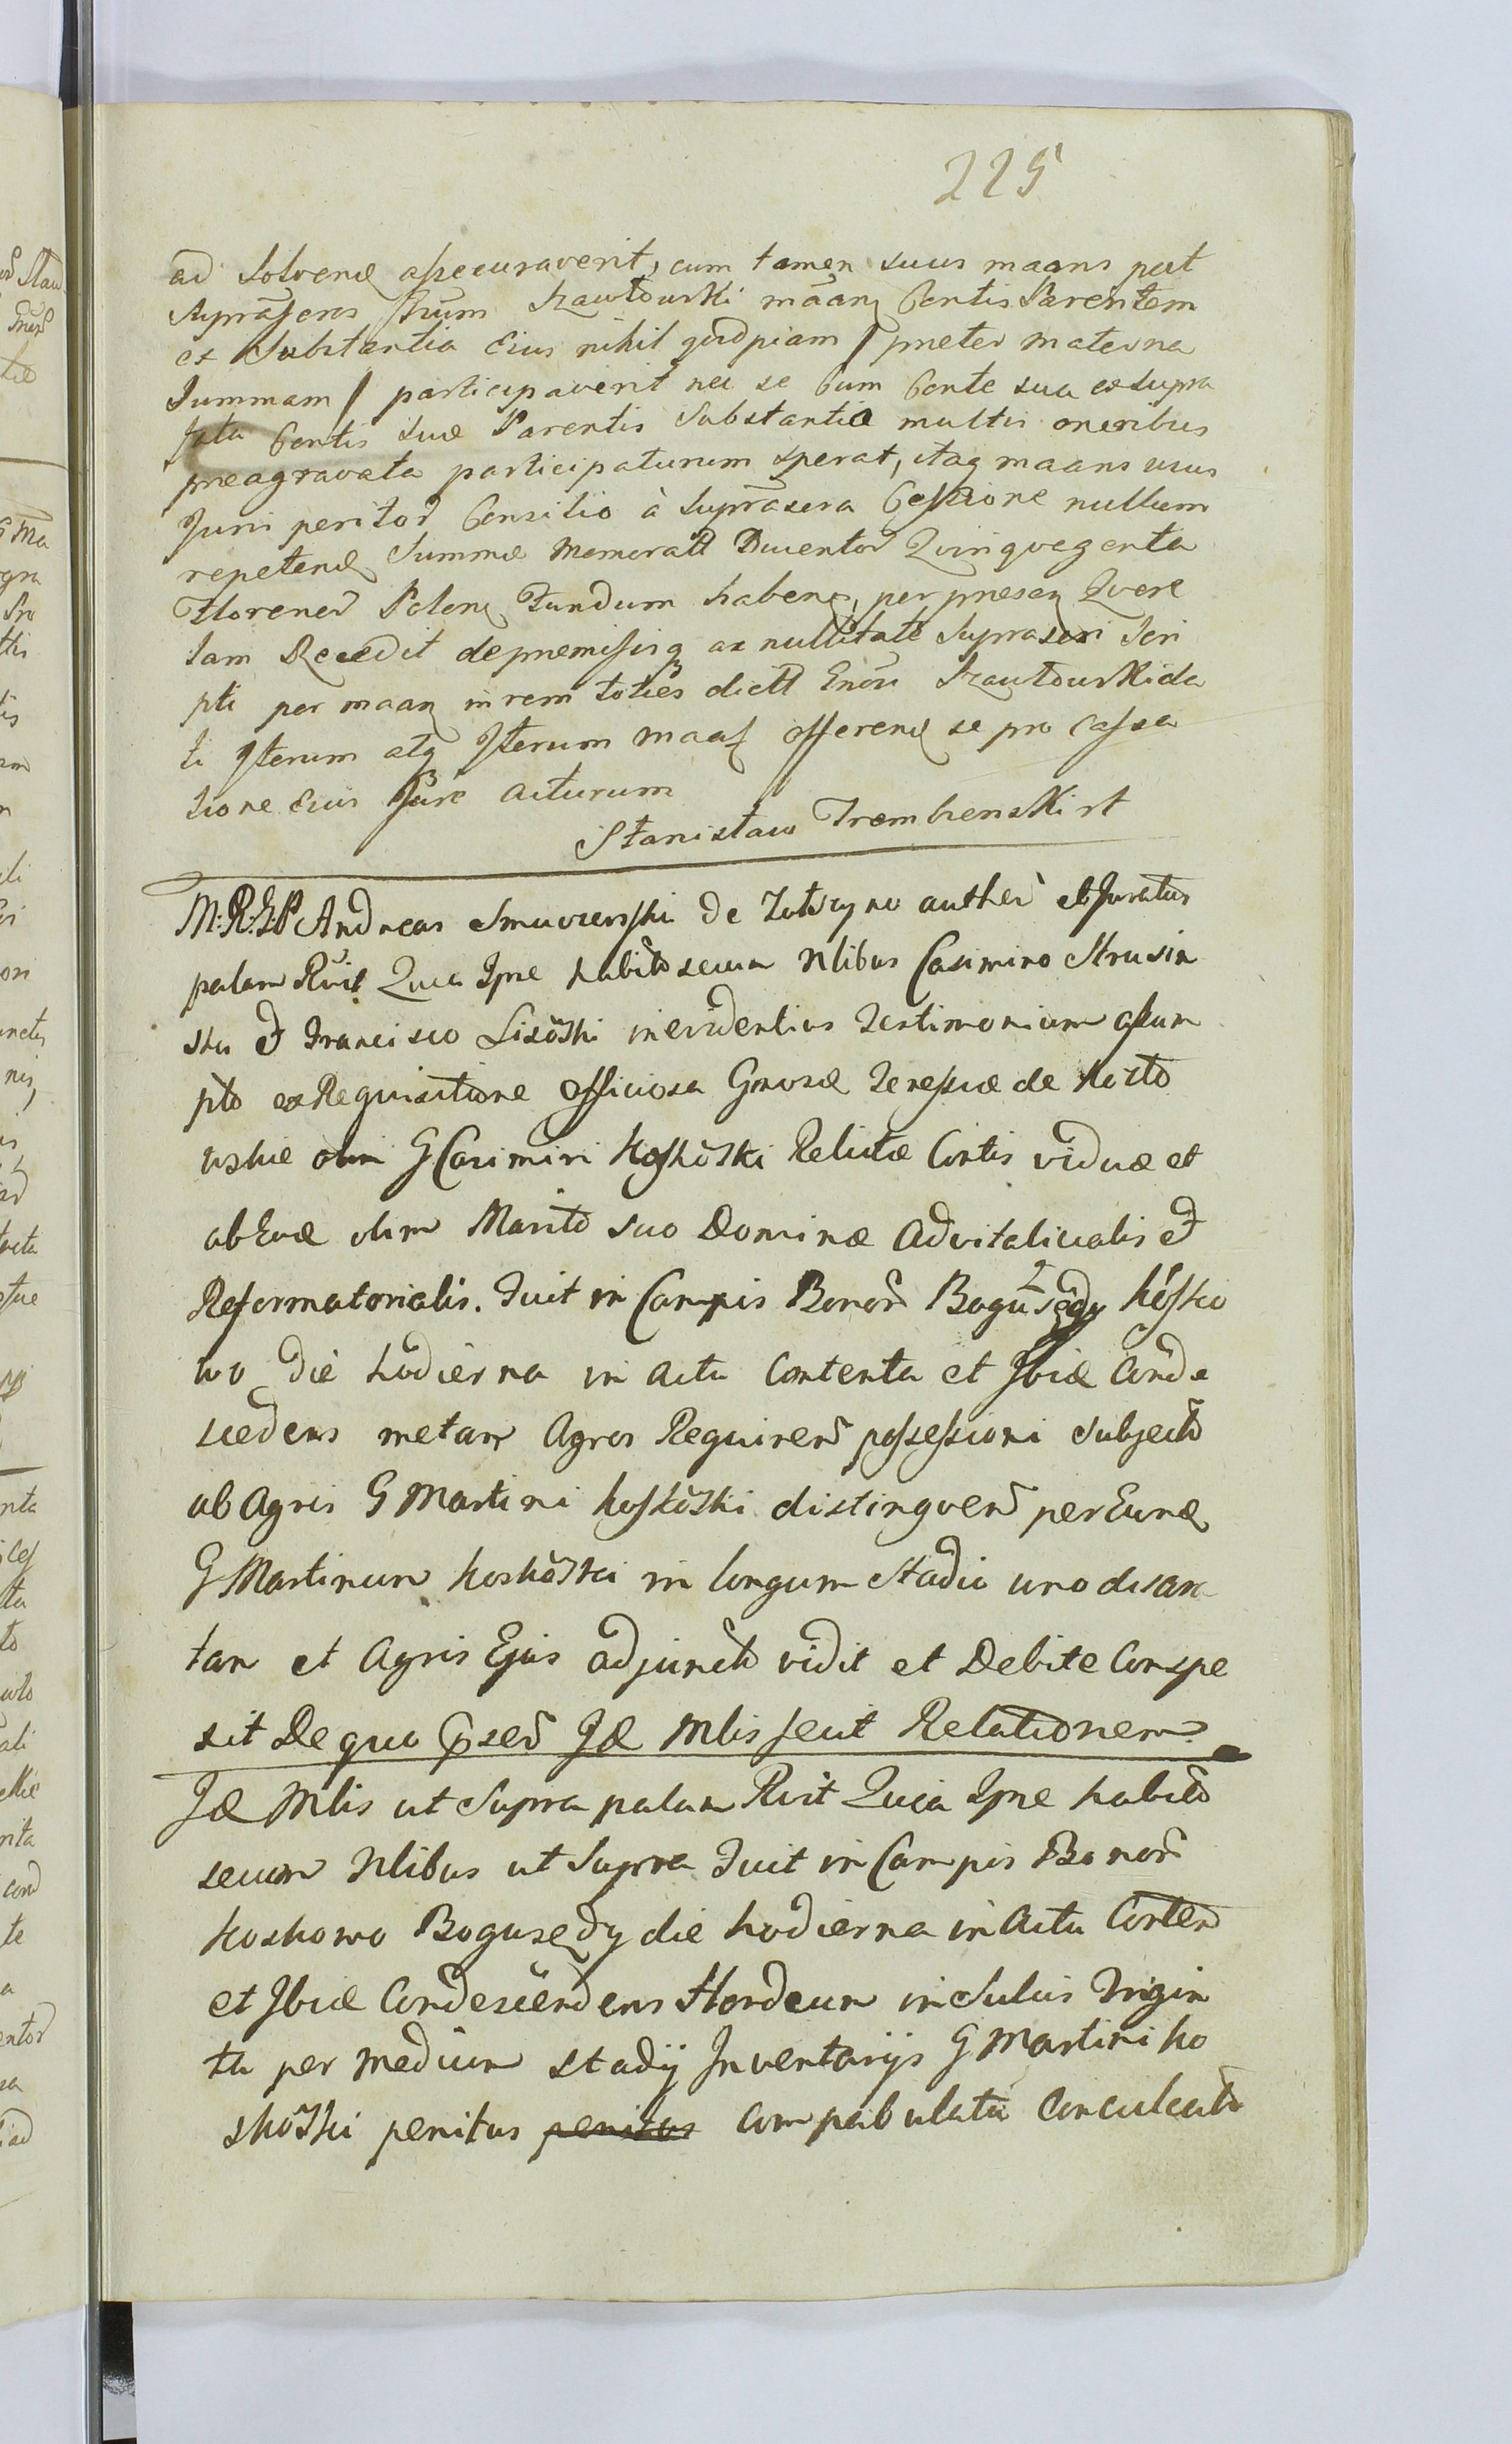 225
ad Solvend assecuraverit, cum tamen suus maans pert
supraseros Szawłowski maang Contis Parentem
ex Substantia Eius nihil qudpiam / preter materna
Summam / participaverit nec se Cum Conte sua ex supra
Contis suæ Parentis Substantia multis oneribus
preagravata participaturum sperat, itaq maans usus
Juris peritor Consilio à suprasera Cessione nullum
repetend Summæ memoratt Ducentor Quinquegenta
Florenor Polong fundum habeng, per presen Quere
lam Recedit de premissisq ac nullitate supraseri Scri
pti per maang in rem toties dictt Szawłowski da
ti Iterum atq Iterum offerend se pro Cassa
tione Eius Jure acturum
Stanisław Trembienski rt
M: R: G: P Andreas Smuczerski de author et Juratus
palam Ruit Quia Ipse habito secum Nlibus Casimiro Strusin
ski et Francisco Lisoski in evidentius testimonium assum
pto ex Requisitione officiosa Gnrosæ Teressiæ de
olim G Casimiri Koskoski Relictæ Contis viduæ et
ab Eod olim Marito suo Dominæ Advitalitialis et
Reformatorialis. Fuit in Campis Bonor Boguszędy Kosko
wo die hodierna in actu Contenta et Ibid Conde
scedens metam Agros Requirend possessioni subject
ab Agris G Martini Koskoski distinguend per Eund
G Martinum Koskoski in longum stadio uno disara
tam et Agris Ejus adjunct vidit et Debite Conspe
xit De quo Id Mlis fecit Relationem
Id Mlis ut Supra palam Ruit Quia Ipse habito
secum Nlibus ut Supra Fuit in Campis Bonor
Koskowo Boguszędy die hodierna in actu Conten
et Ibid Condescendens Hordeum in Sulcis Trigin
ta per medium stadij Inventarijs G Martini Ko
skoski penitus penitus compabulatu Conculcato